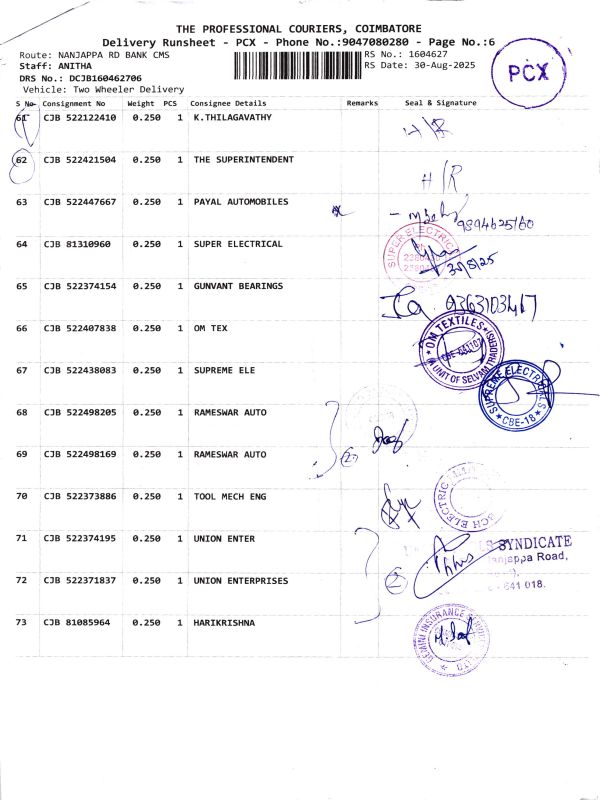 THE PROFESSIONAL COURIERS, COIMBATORE
Delivery Runsheet - PCX - Phone No.:9047080280 - Page No.:6
Route: NANJAPPA RD BANK CMS
RS No.: 1604627
Staff: ANITHA
RS Date: 30-Aug-2025
DRS No.: DCJB160462706
Vehicle: Two Wheeler Delivery
PCX
S No Consignment No Weight PCS Consignee Details Remarks Seal & Signature
61 CJB 522122410 0.250 1 K.THILAGAVATHY
H/R
62 CJB 522421504 0.250 1 THE SUPERINTENDENT
H/R
63 CJB 522447667 0.250 1 PAYAL AUTOMOBILES
9894625160
64 CJB 81310960 0.250 1 SUPER ELECTRICAL
SUPER ELECTRIC
30/8/25
65 CJB 522374154 0.250 1 GUNVANT BEARINGS
9363103417
66 CJB 522407838 0.250 1 OM TEX
OM TEXTILES
CBE-641107
UNIT OF SELVAM TRADERS
67 CJB 522438083 0.250 1 SUPREME ELE
SUPREME ELECTRICALS
CBE-18
68 CJB 522498205 0.250 1 RAMESWAR AUTO
69 CJB 522498169 0.250 1 RAMESWAR AUTO
2
70 CJB 522373886 0.250 1 TOOL MECH ENG
ELECTRIC
71 CJB 522374195 0.250 1 UNION ENTER
SYNDICATE
anjappa Road,
72 CJB 522371837 0.250 1 UNION ENTERPRISES
2
641 018.
73 CJB 81085964 0.250 1 HARIKRISHNA
GEMINI INSURANCE